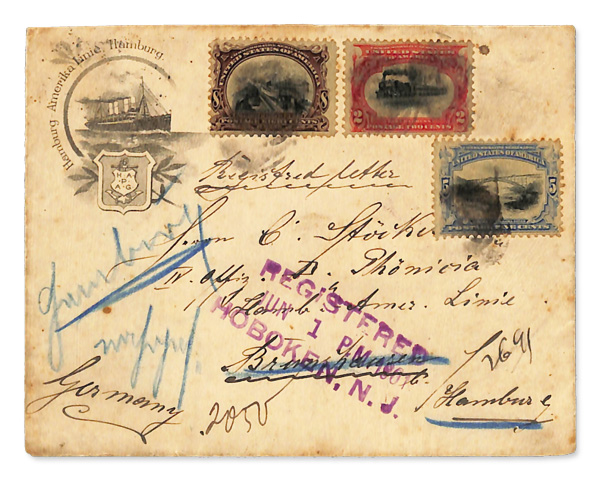 Hamburg Amerika Linie, Hamburg.
H A
P A
G
UNITED STATES OF AMERICA
8 8
POSTAGE EIGHT CENTS
UNITED STATES OF AMERICA
2 2
POSTAGE TWO CENTS
UNITED STATES OF AMERICA
5 5
CENTS
Registred letter
Herrn C. Stöcker
IV. Offiz. D. Phönicia
Hamb. Amer. Linie
Hamburg
Germany
2050
2691
REGISTERED
JUN 1 P.M. 1901
HOBOKEN. N. J.
Hamburg